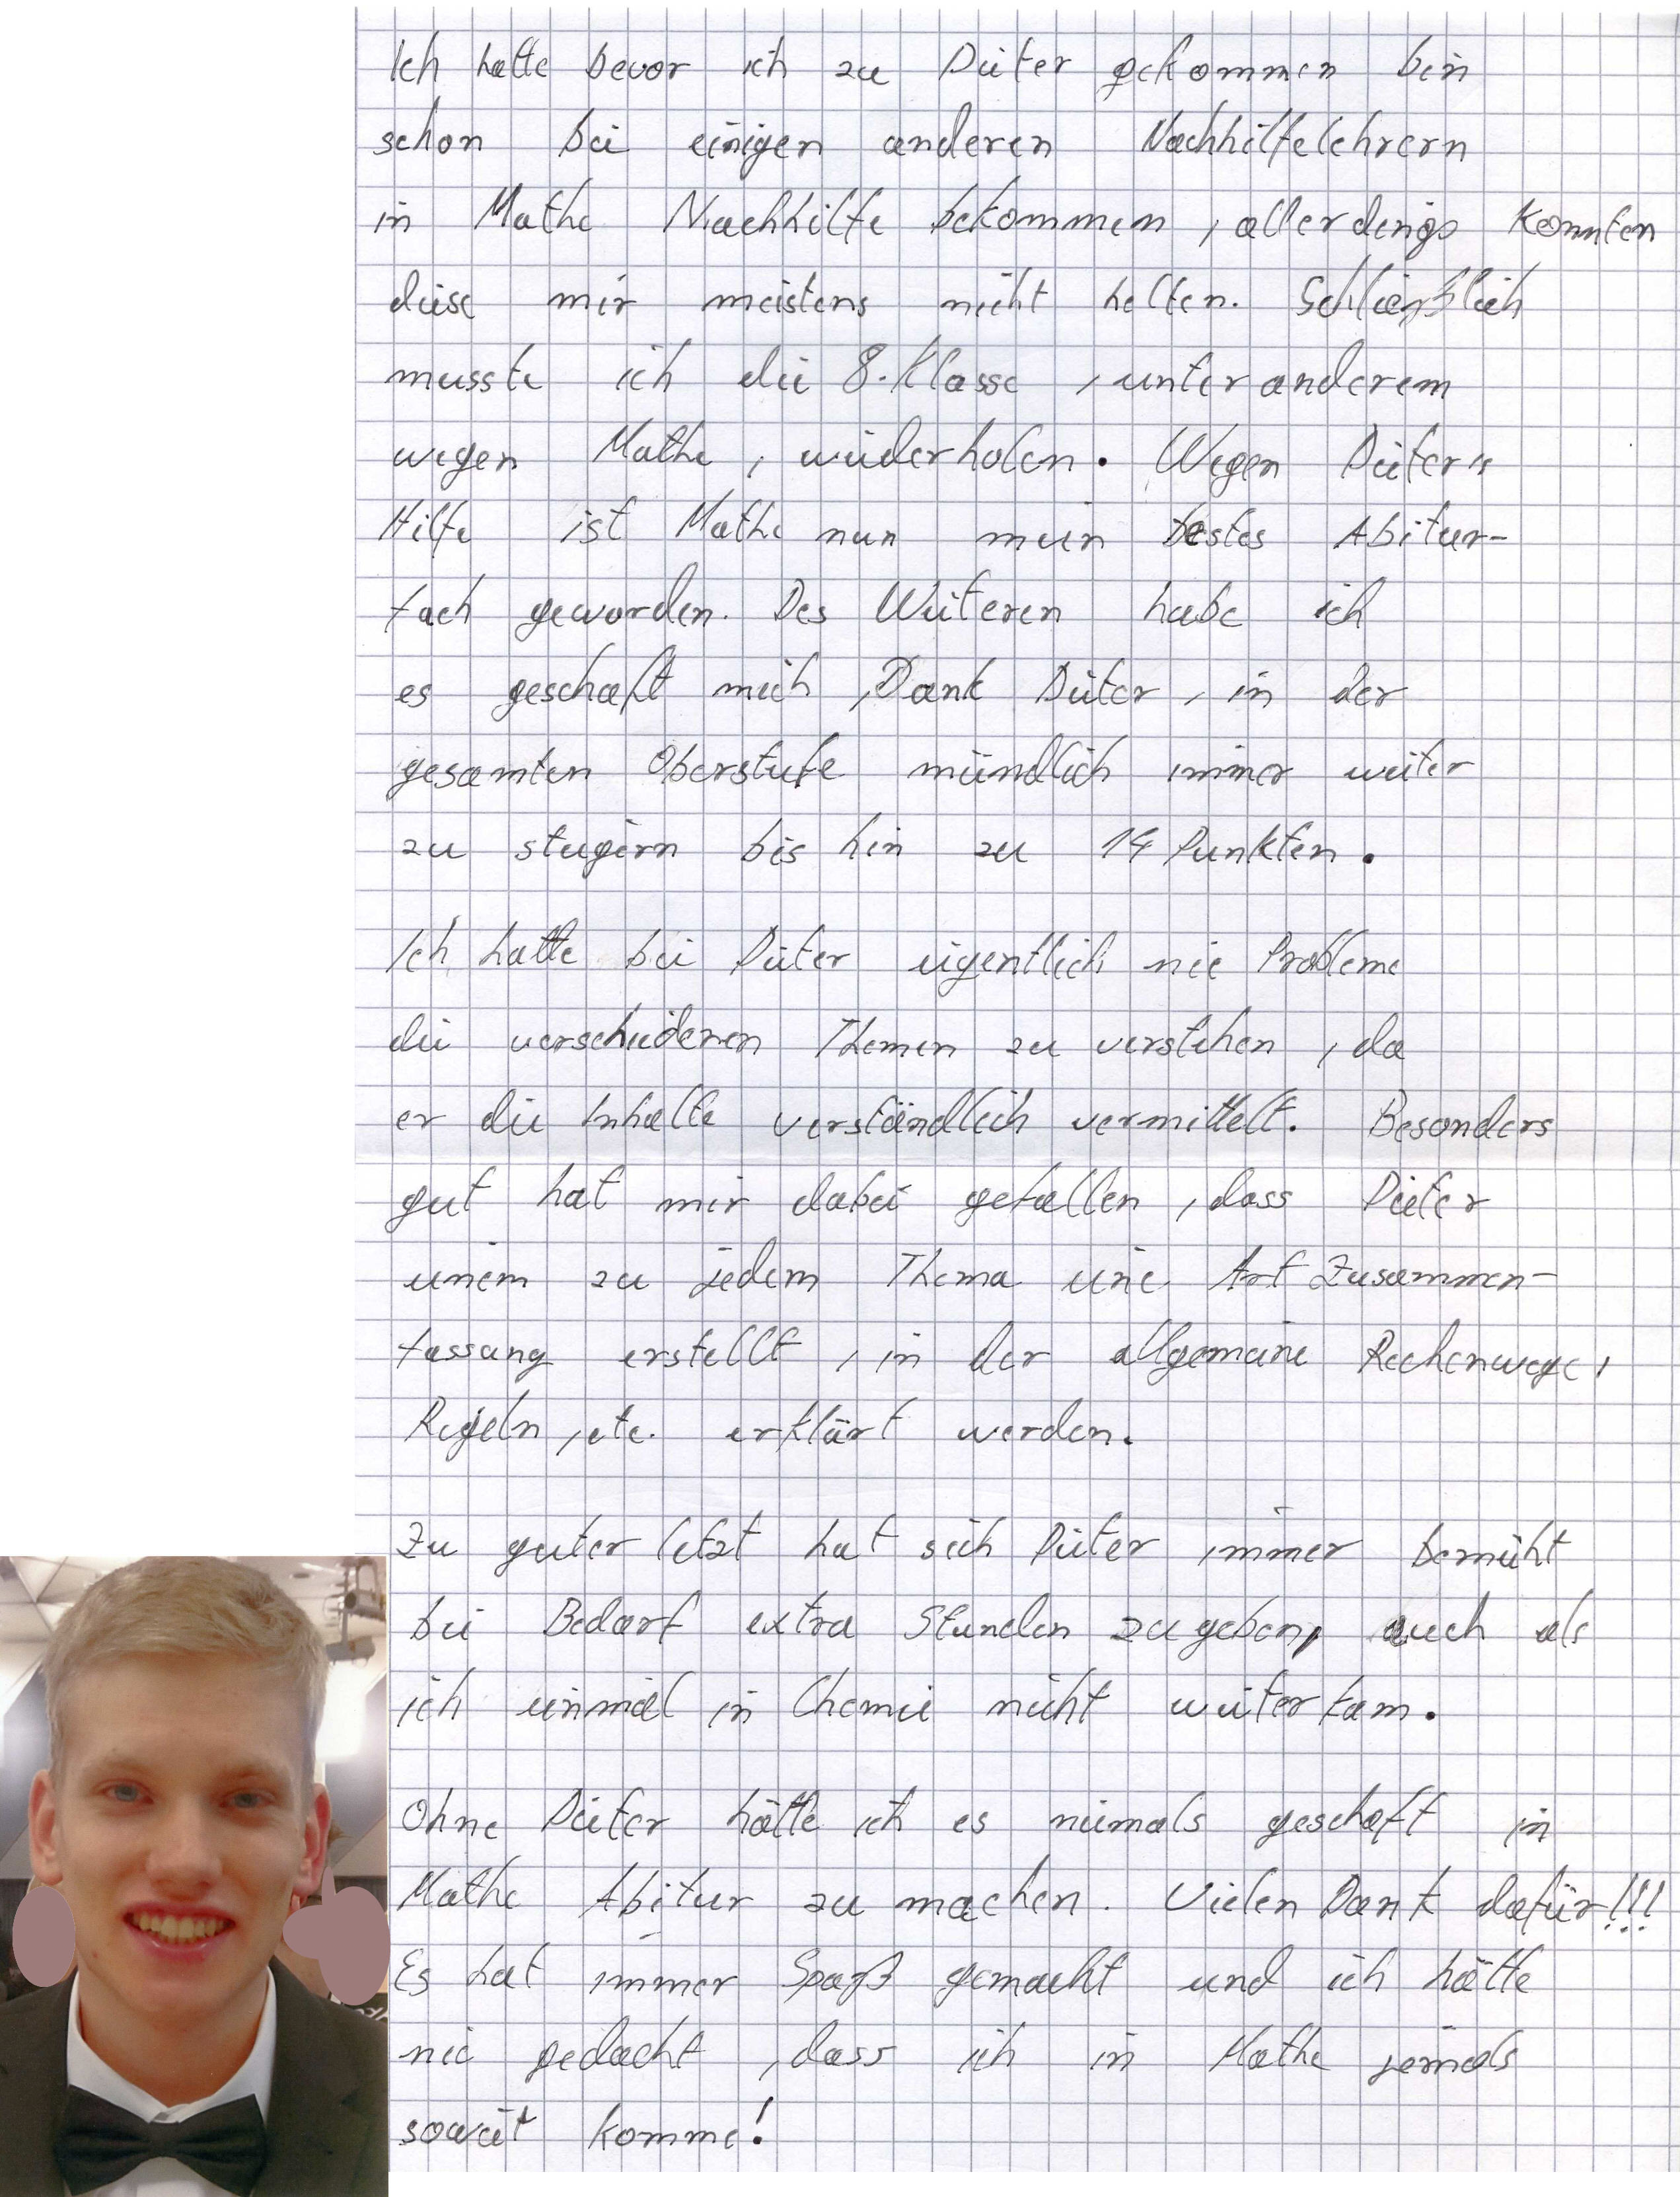 Ich hatte bevor ich zu Dieter gekommen bin
schon bei einigen anderen Nachhilfelehrern
in Mathe Nachhilfe bekommen, allerdings konnten
diese mir meistens nicht helfen. Schließlich
musste ich die 8. Klasse, unter anderem
wegen Mathe, wiederholen. Wegen Dieter's
Hilfe ist Mathe nun mein bestes Abitur-
fach geworden. Des Weiteren habe ich
es geschaft mich, Dank Dieter, in der
gesamten Oberstufe mündlich immer weiter
zu steigern bis hin zu 14 Punkten.
Ich hatte bei Dieter eigentlich nie Probleme
die verschiedenen Themen zu verstehen, da
er die Inhalte verständlich vermittelt. Besonders
gut hat mir dabei gefallen, dass Dieter
einem zu jedem Thema eine Art Zusammen-
fassung erstellt, in der allgemeine Rechenwege,
Regeln, etc. erklärt werden.
Zu guter letzt hat sich Dieter immer bemüht
bei Bedarf extra Stunden zu geben, auch als
ich einmal in Chemie nicht weiter kam.
Ohne Dieter hätte ich es niemals geschaft in
Mathe Abitur zu machen. Vielen Dank dafür!!!
Es hat immer Spaß gemacht und ich hätte
nie gedacht, dass ich in Mathe jemals
soweit komme!